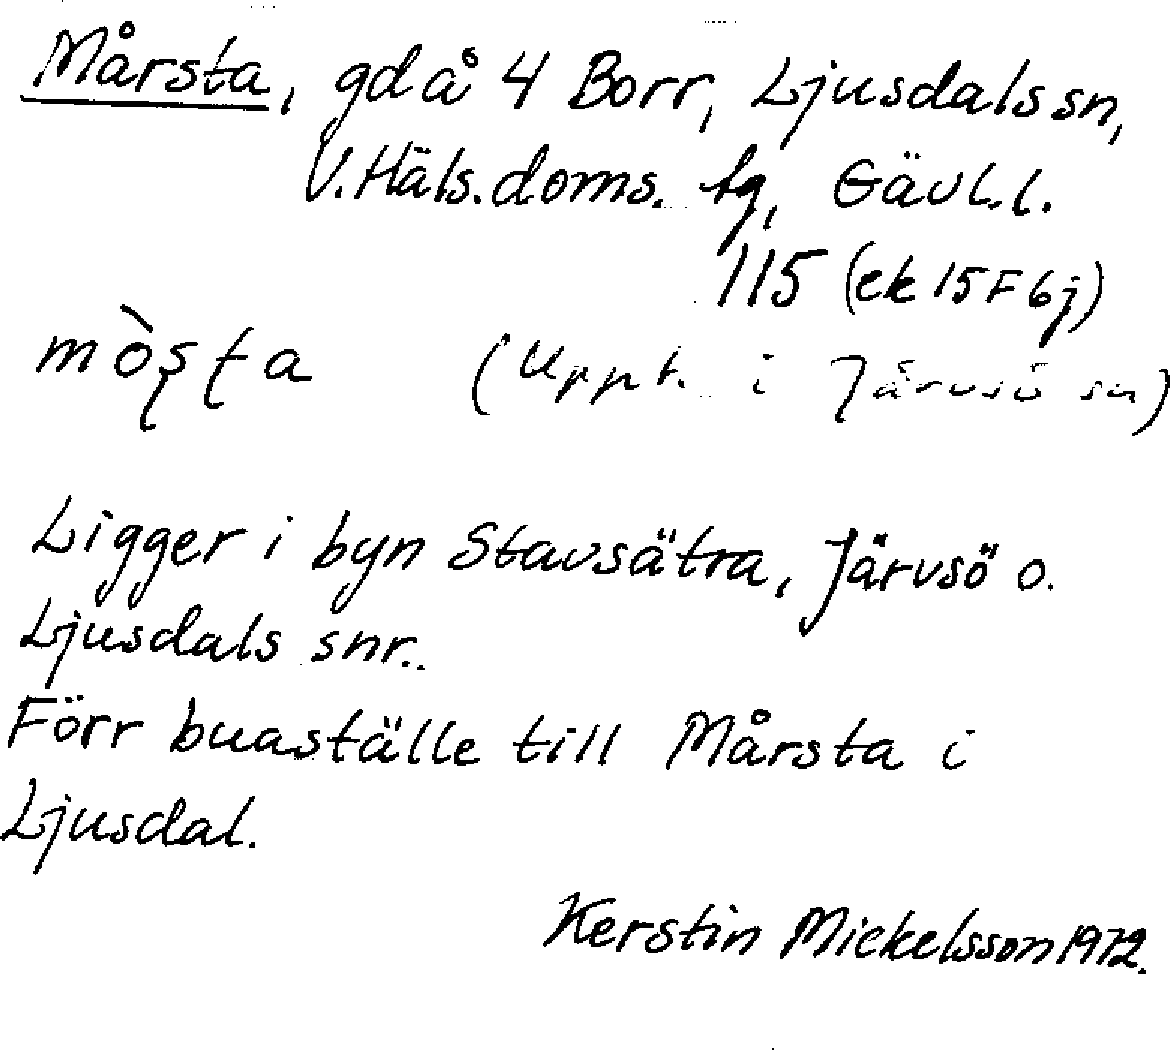 Mårsta, gd å 4 Borr, Ljusdals sn,
V. Häls. doms. tg, Gävl. l.
115 (ek 15F6j)
mò̀ʂʈa (Uppt. i Järvsö sn)
Ligger i byn Stavsätra, Järvsö o.
Ljusdals snr.
Förr buaställe till Mårsta i
Ljusdal.
Kerstin Mickelsson 1972.